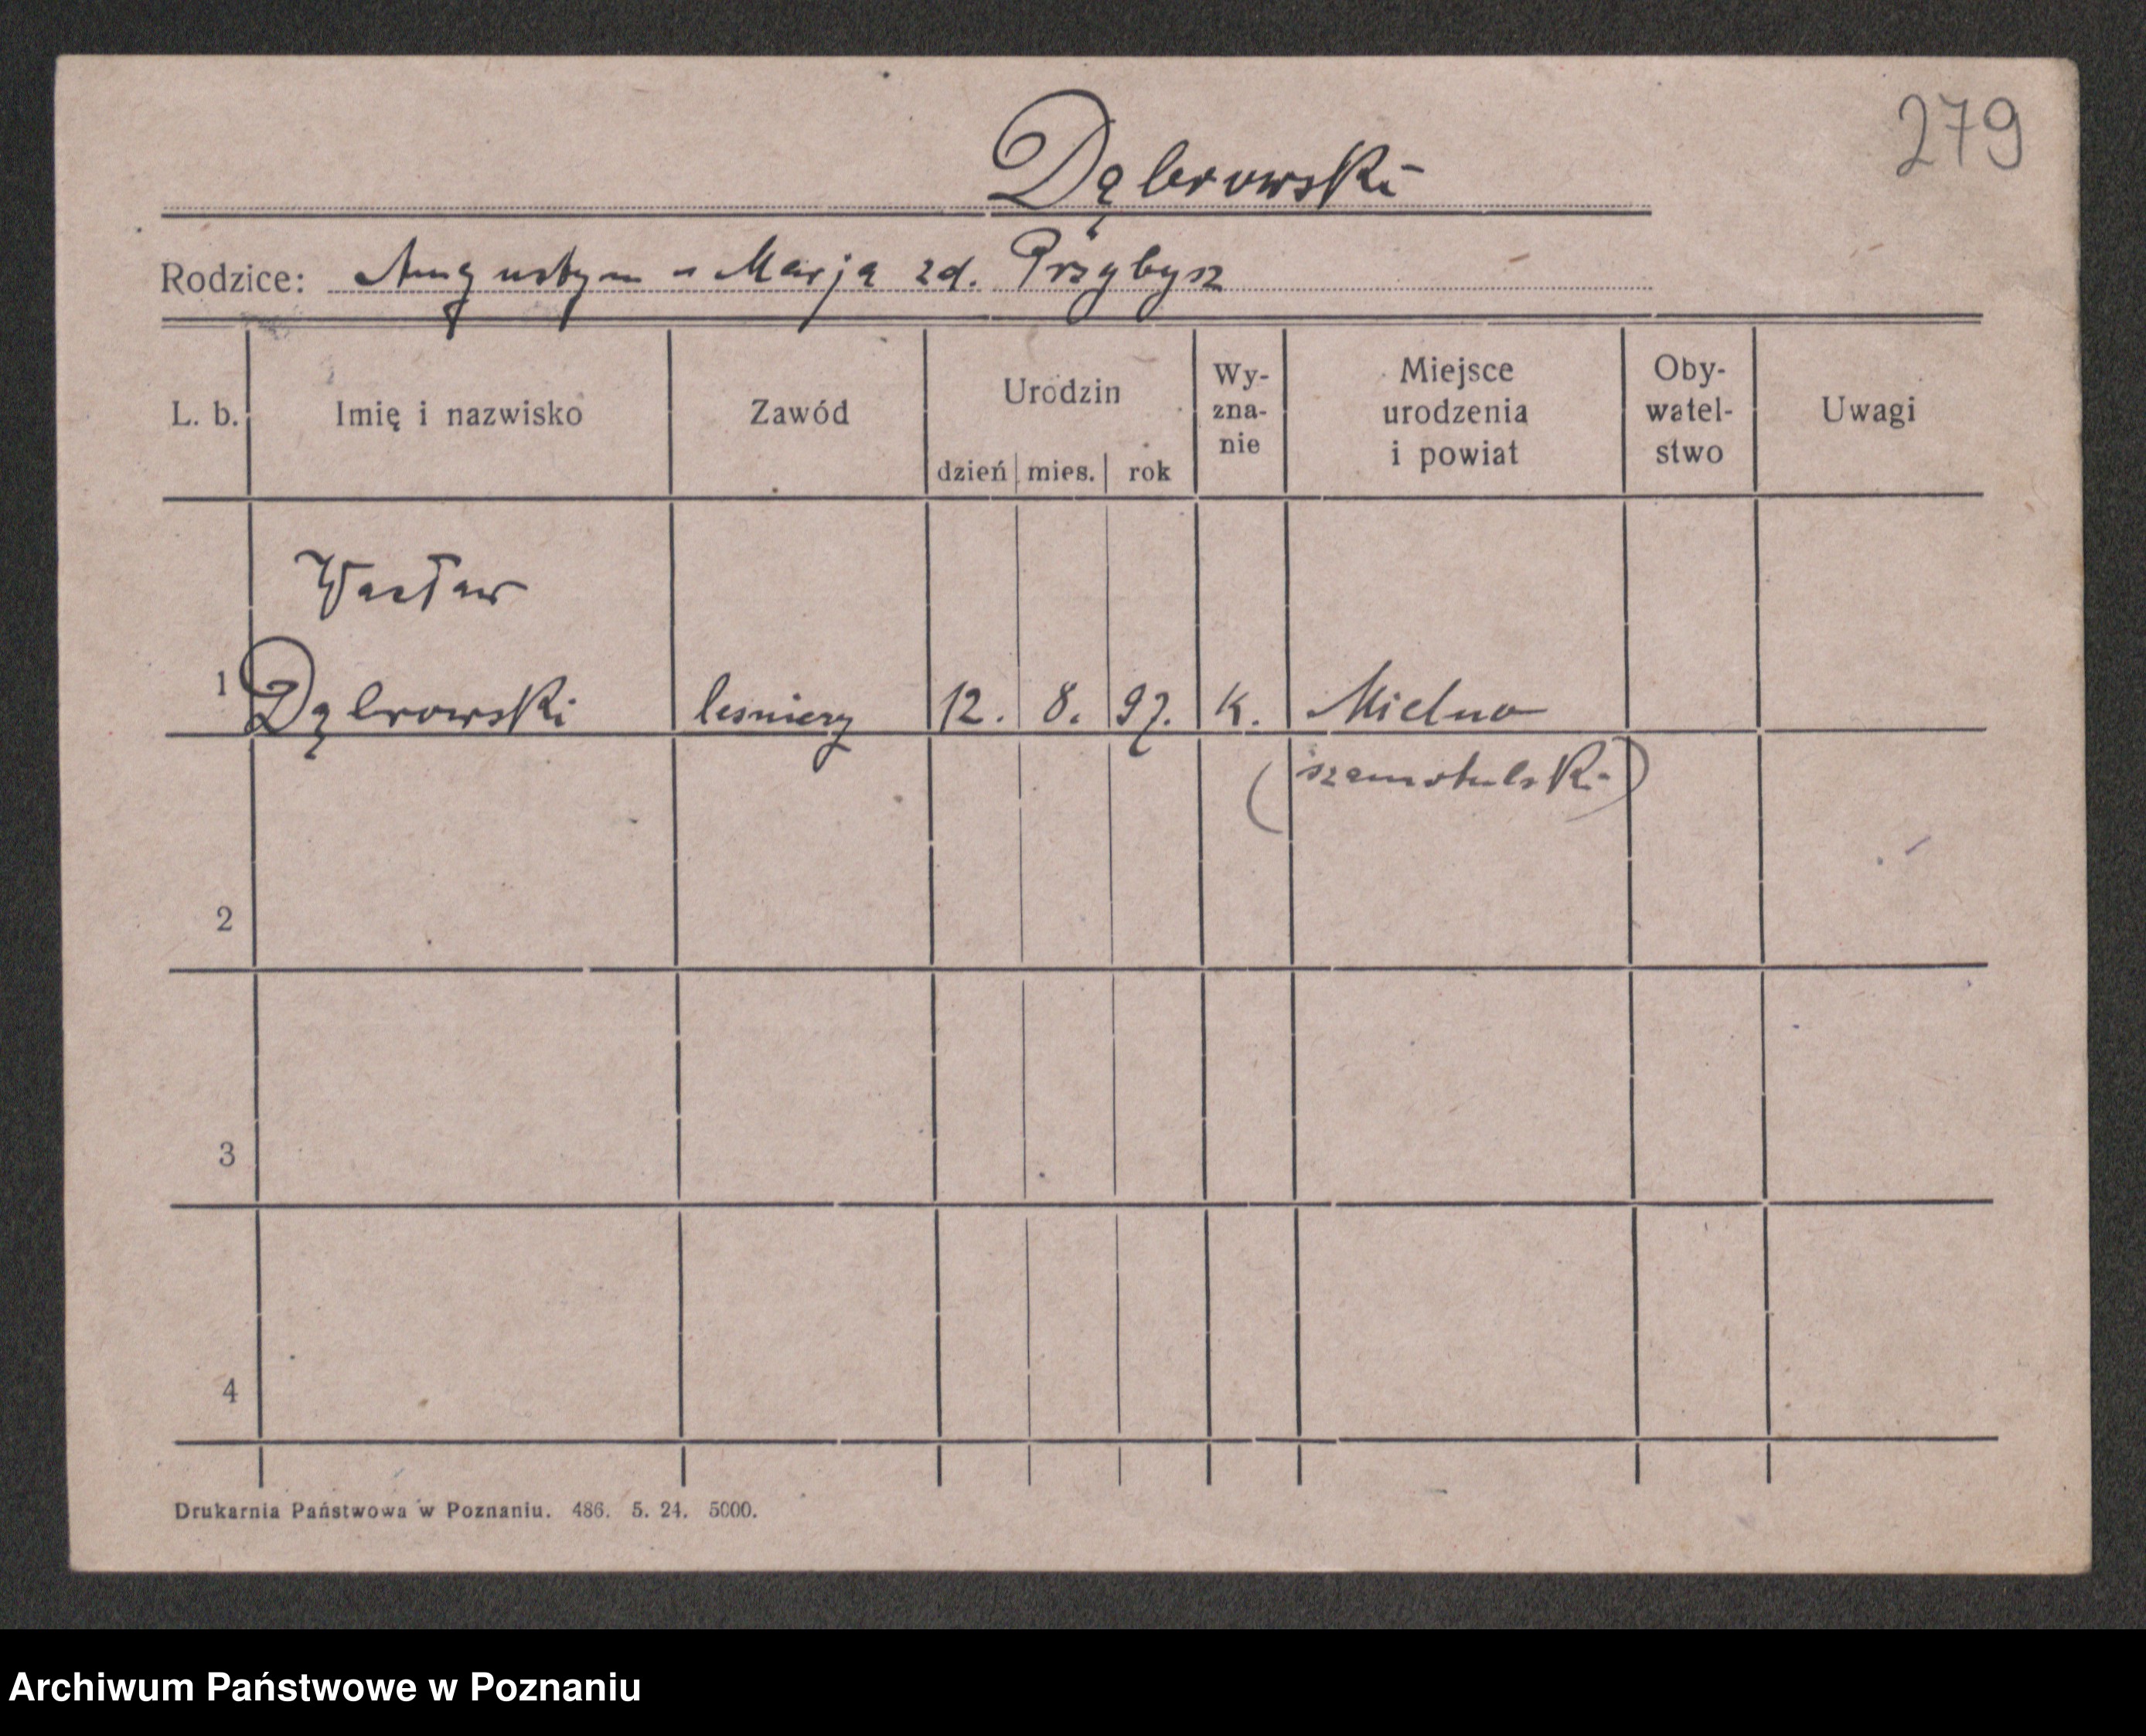 279
Dąbrowski
Rodzice: Augustyn - Marja zd. Przybysz
L. b. Imię i nazwisko Zawód Urodzin dzień mies. rok Wy-zna-nie Miejsce urodzenia i powiat Oby-watel-stwo Uwagi
Wacław
1 Dąbrowski lesniczy 12. 8. 97. K. Mielno
(szamotulski)
2
3
4
Drukarnia Państwowa w Poznaniu. 486. 5. 24. 5000.
Archiwum Państwowe w Poznaniu